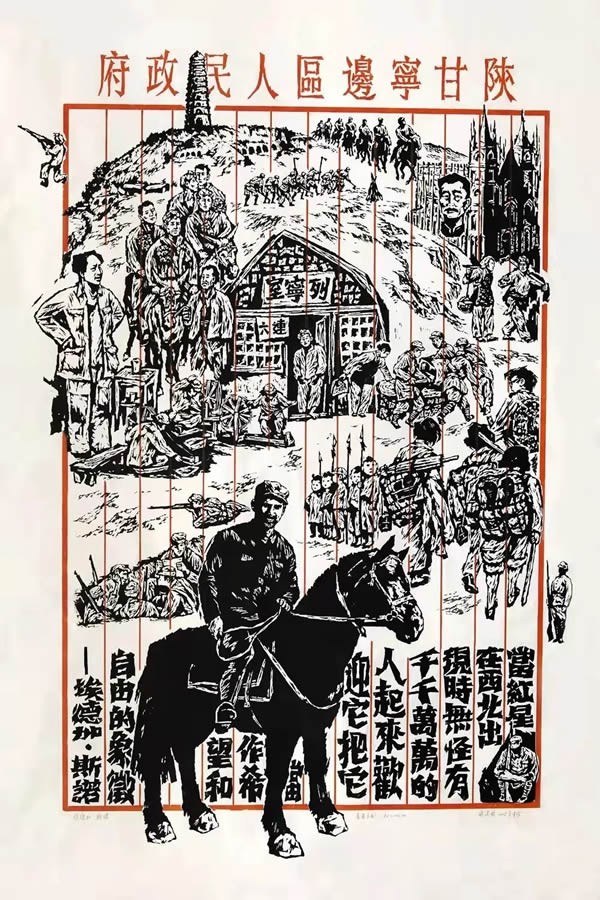 陝甘寧邊區人民政府
列寧室
六連
當紅星
在西北出
現時無怪有
千千萬萬的
人起來歡
迎它把它
當
作希
望和
自由的象徵
—埃德加·斯諾